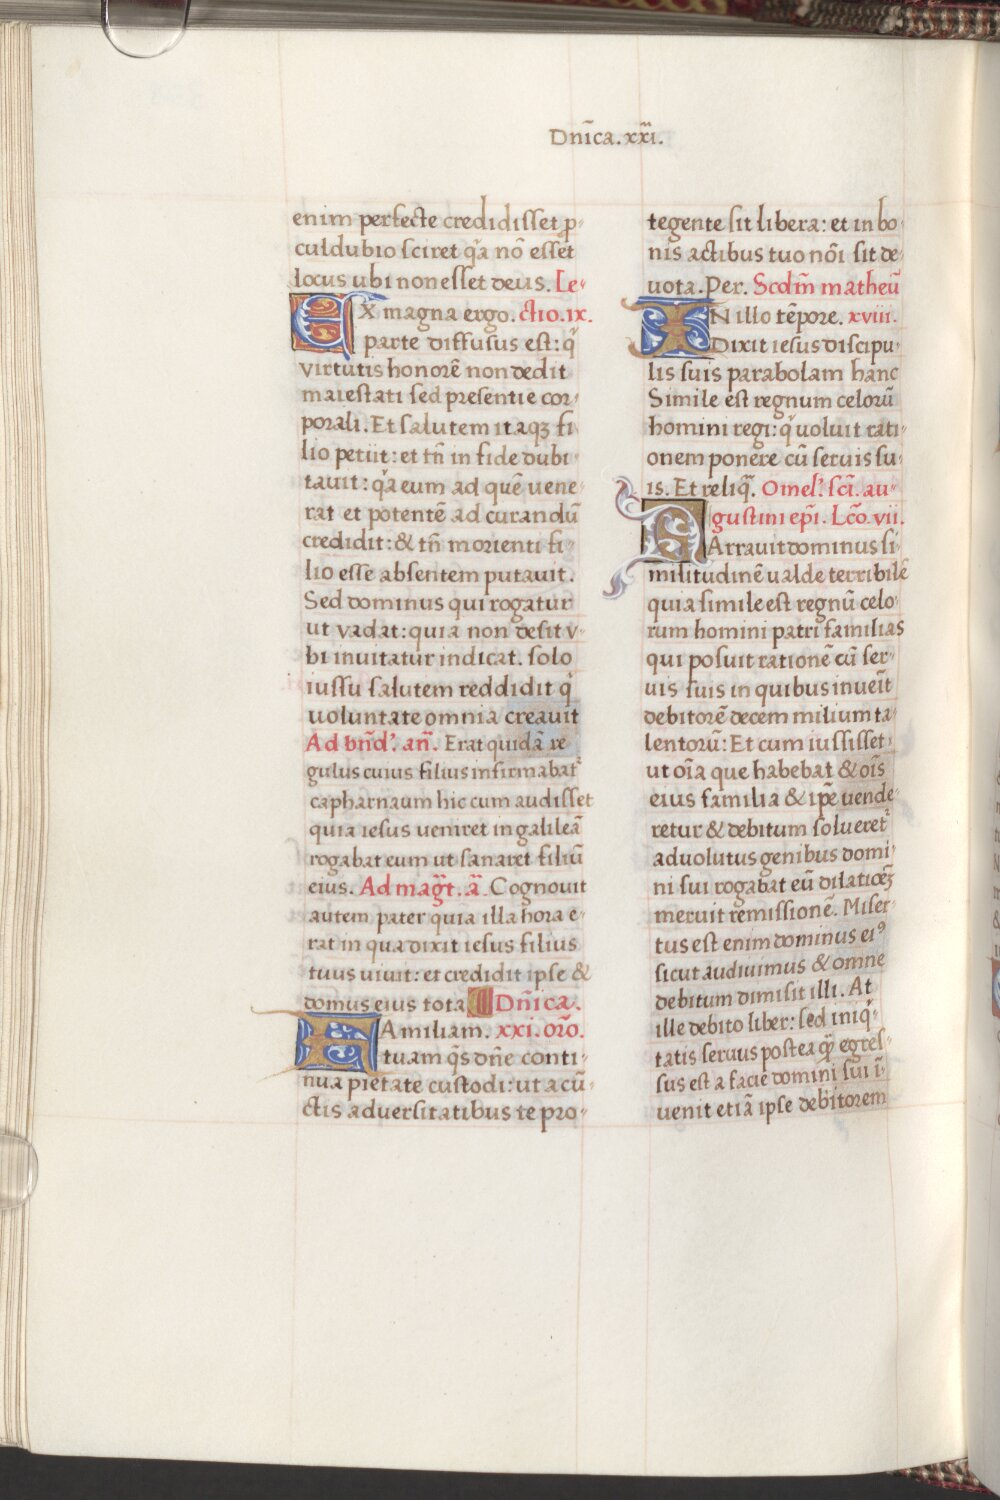 Dñica.xxi.
enim perfecte credidisset p-
culdubio sciret q̃a nõ esset
locus ubi non esset deus. Le-
EX magna ergo. ctio.ix.
parte diffusus est: q̃
virtutis honorẽ non dedit
maiestati sed presentie cor-
porali. Et salutem itaqʒ fi
lio petiit: et tñ in fide dubi-
tauit: q̃a eum ad quẽ uene-
rat et potentẽ ad curandũ
credidit: & tñ morienti fi-
lio esse absentem putauit.
Sed dominus qui rogatur
ut vadat: quia non desit v-
bi inuitatur indicat. solo
iussu salutem reddidit q̃
uoluntate omnia creauit
Ad bñd'. añ. Erat quidã re-
gulus cuius filius infirmabat᷑
capharnaum hic cum audisset
quia iesus ueniret in galileã
rogabat eum ut sanaret filiũ
eius. Ad mag̃t. ã. Cognouit
autem pater quia illa hora e-
rat in qua dixit iesus filius
tuus uiuit: et credidit ipse &
domus eius tota Dñica.
FAmiliam. xxi. oro.
tuam q̃s dñe conti-
nua pietate custodi: ut a cũ-
ctis aduersitatibus te pro-
tegente sit libera: et in bo-
nis actibus tuo nõi sit de-
uota. Per. Scdm̃ matheũ
IN illo tẽpore. xviii.
Dixit iesus discipu-
lis suis parabolam hanc
Simile est regnum celorũ
homini regi: q̃ uoluit rati-
onem ponere cũ seruis su-
is. Et reliq̃. Omel'. sci. au-
gustini epi. Lco. vii.
NArrauit dominus si-
militudinẽ ualde terribilẽ
quia simile est regnũ celo-
rum homini patri familias
qui posuit rationẽ cũ ser-
uis suis in quibus inueit
debitorẽ decem milium ta-
lentorũ: Et cum iussisset
ut oĩa que habebat & oĩs
eius familia & ipẽ uende-
retur & debitum solueret᷑
aduolutus genibus domi-
ni sui rogabat eũ dilatioẽʒ
meruit remissionẽ. Miser-
tus est enim dominus eiꝰ
sicut audiuimus & omne
debitum dimisit illi. At
ille debito liber: sed iniq̃-
tatis seruus postea qʒ̃ egres-
sus est a facie domini sui ĩ-
uenit etiã ipse debitorem